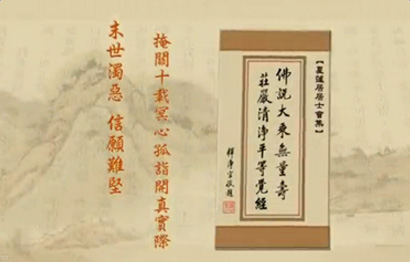 【夏蓮居居士會集】
佛說大乘無量壽
莊嚴清淨平等覺經
釋淨空敬題
掩關十載冥心孤詣開真實際
末世濁惡 信願難堅